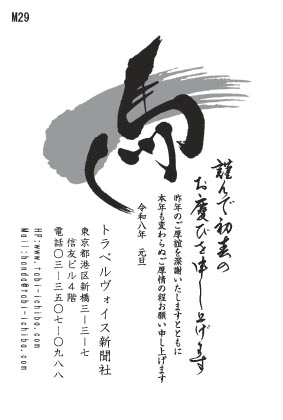 M29
馬
謹んで初春の
お慶びを申し上げます
昨年のご厚誼を深謝いたしますとともに
本年も変わらぬご厚情の程お願い申し上げます
令和八年　元旦
トラベルヴォイス新聞社
東京都港区新橋三ー三ー七
信友ビル４階
電話〇三ー三五〇七ー〇九八八
HP:www.tabi-ichiba.com
Mail:honda@tabi-ichiba.com